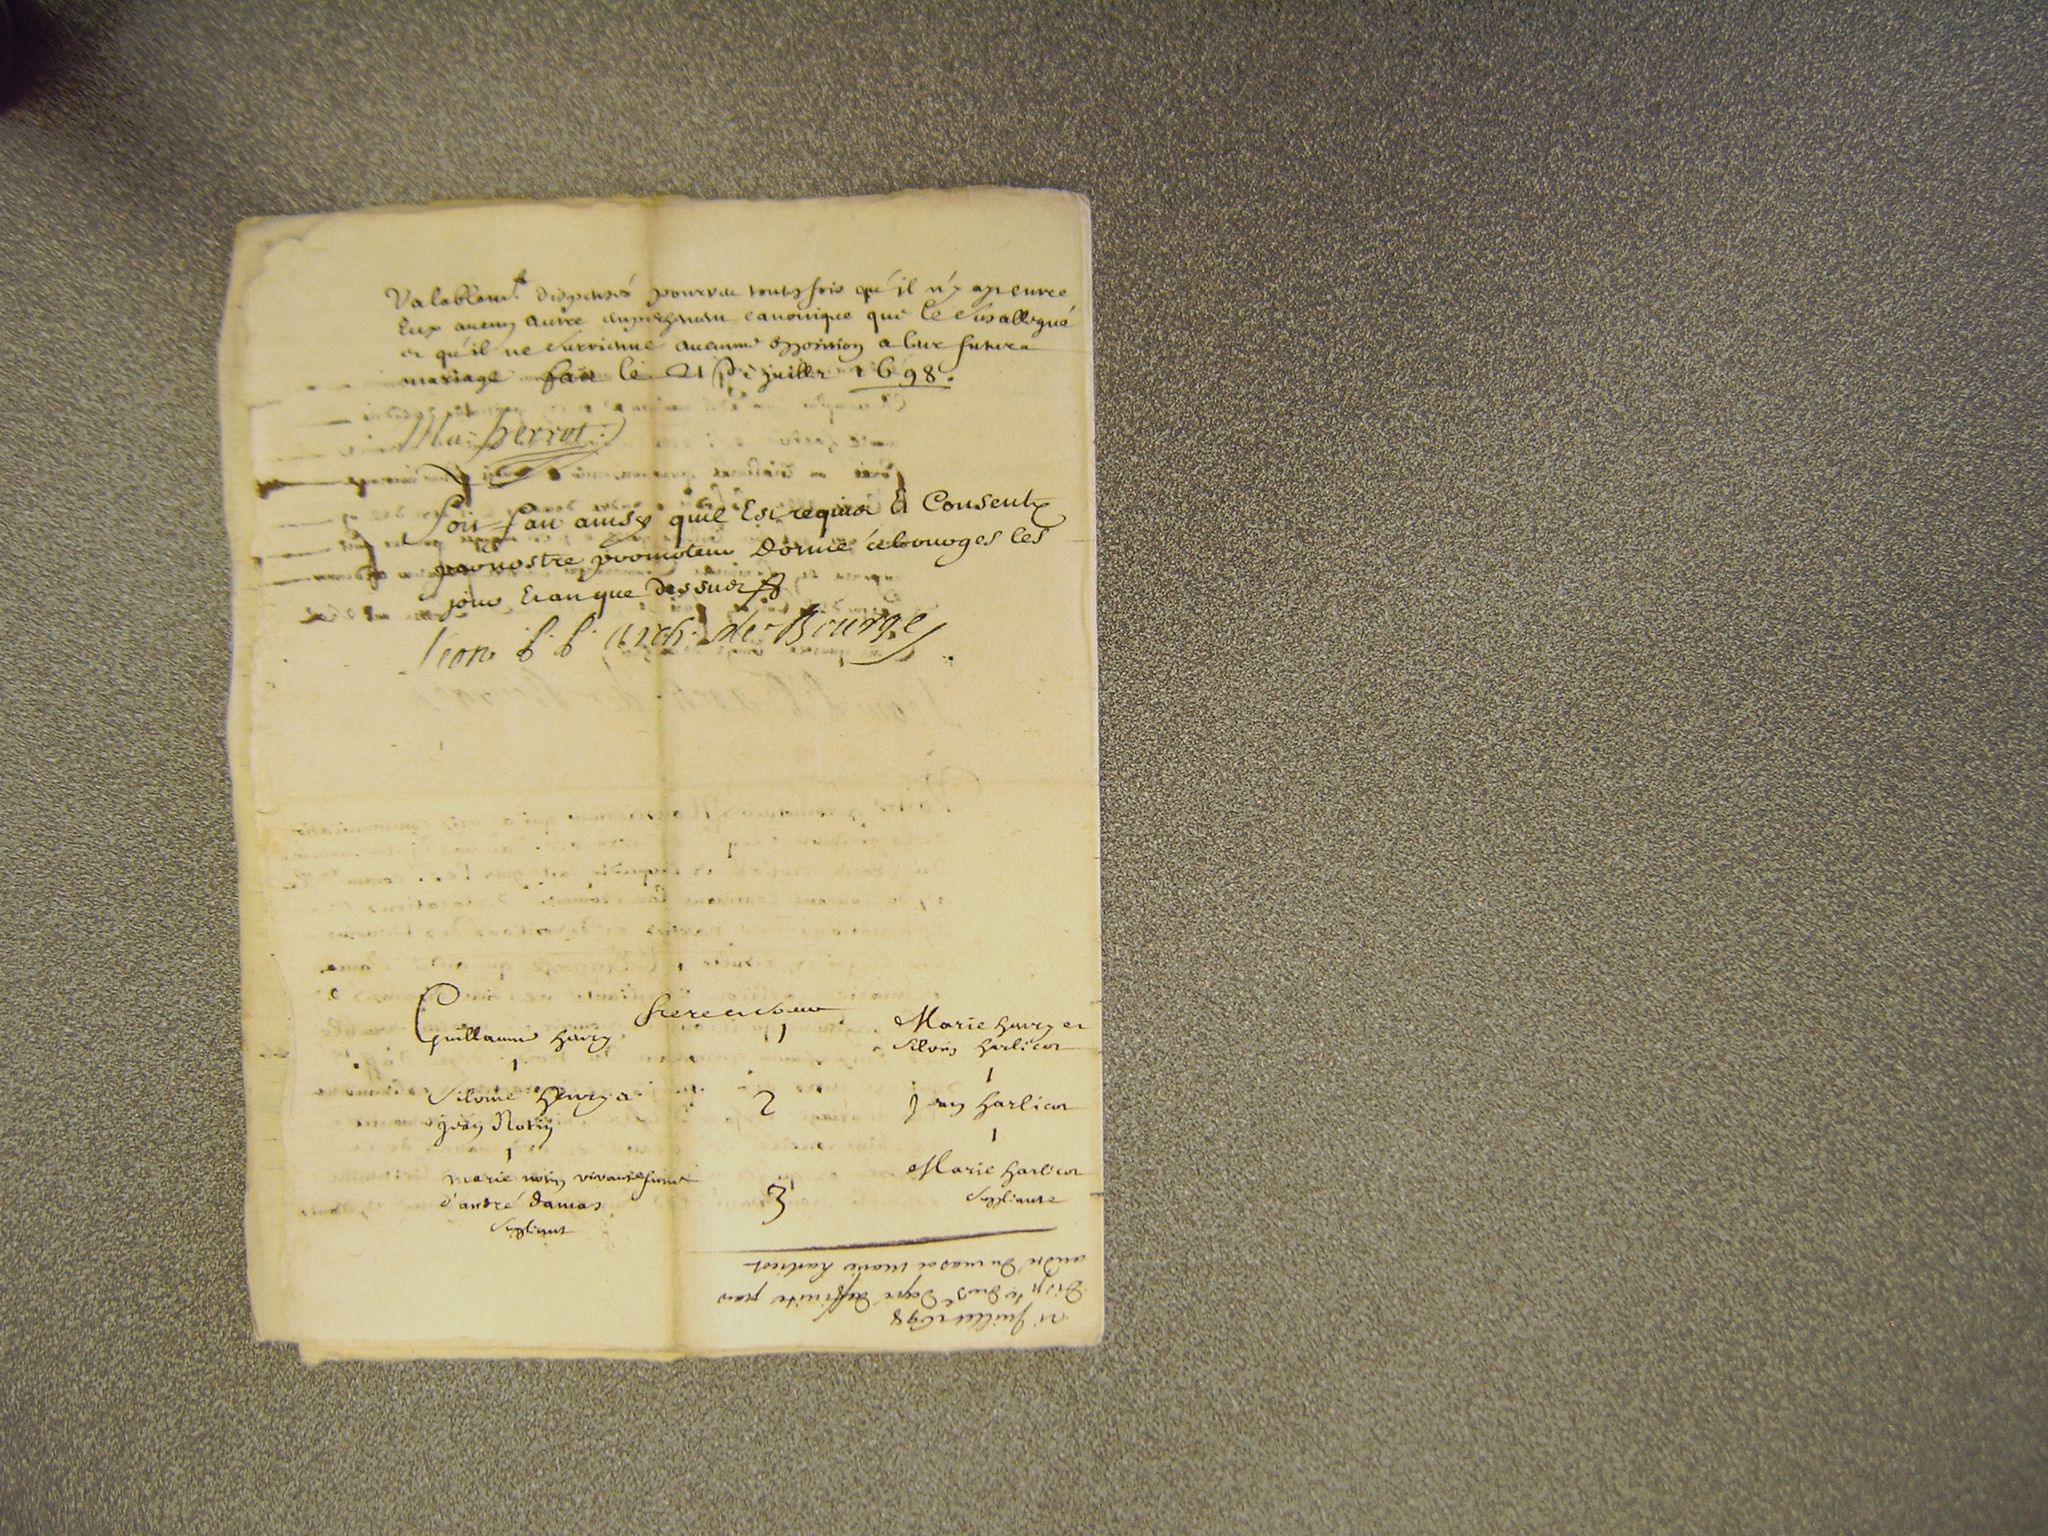 Valablemt. dispensés pourveu toutesfois qu'il n'y aye entre
Eux aucun autre empeschement canonique que le susallegué
et qu'il ne survienne aucunne opposition a leur futur
mariage fait le 21 juillet 1698.
Ma: perrot
Soit fait ainsy quil Est requis Et Consenty
par nostre promoteur Donné à bourges les
jour Et an que dessus
léon P. P. arch. de Bourges
frere et soeur
Guillaume henry 1 Marie henry et
Silvin harlicot
1 1
Silvine Henry et 2 Jean harlicot
jean Notin
1 1
marie notin vivante femme 3 Marie harlicot
d'andré damas Suppliante
Suppliant
21 juillet 1698
Disp. te du 3e degré daffinité pour
andré Dumas et marie harlicot